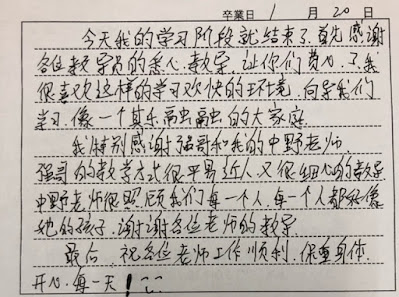 卒業日 1 月 20 日
今天我的学习阶段就结束了.首先感谢
各位教学员的悉心教导.让你们费心了.我
很喜欢这样的学习欢快的环境.向导我们
学习.像一个其乐融融的大家庭
我特别感谢强哥和我的中野老师.
强哥的教学方式很平易近人.又很细心的教导
中野老师很照顾我们每一个人.每一个人都像
她的孩子.谢谢各位老师的教导.
最后.祝各位老师工作顺利.保重身体.
开心每一天!